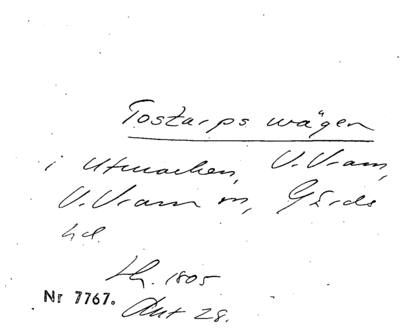 Tostarps vägen
i utmarken, V. Vram,
V. Vram sn, Gärds
hd.
Lh. 1805
Nr 7767.
Akt 28.